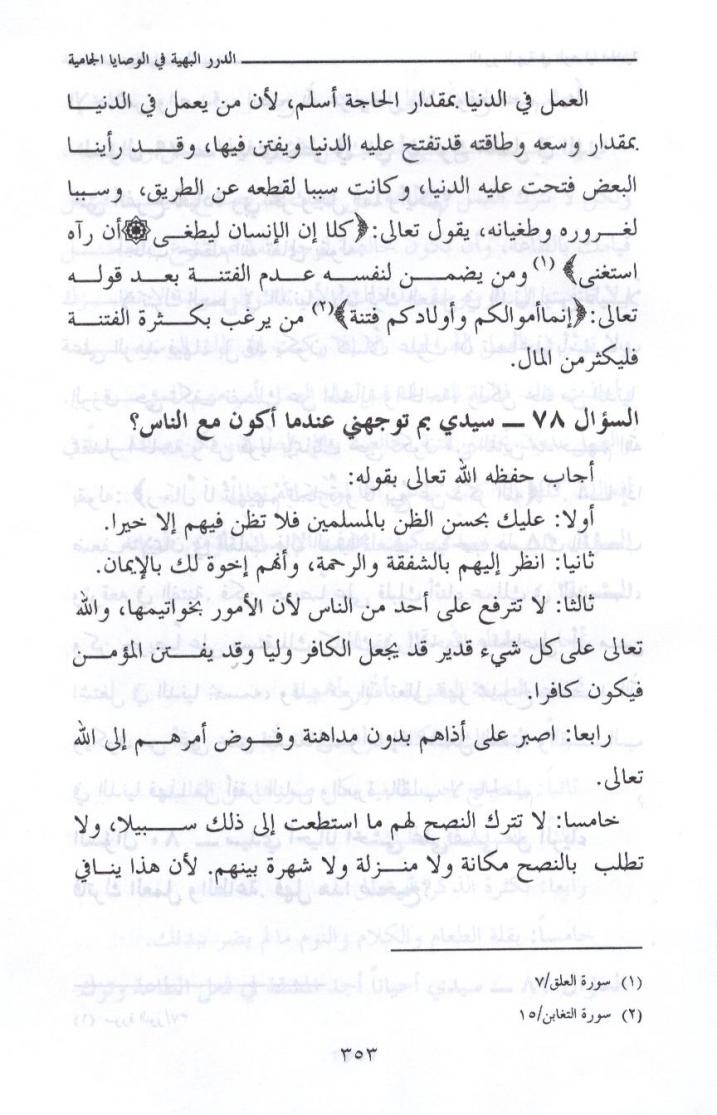 الدرر البهية في الوصايا الجامية
العمل في الدنيا بمقدار الحاجة أسلم، لأن من يعمل في الدنيا
بمقدار وسعه وطاقته قدتفتح عليه الدنيا ويفتن فيها، وقد رأينا
البعض فتحت عليه الدنيا، وكانت سببا لقطعه عن الطريق، وسببا
لغروره وطغيانه، يقول تعالى:﴿كلا إن الإنسان ليطغى۞أن رآه
استغنى﴾ (١) ومن يضمن لنفسه عدم الفتنة بعد قوله
تعالى:﴿إنماأموالكم وأولادكم فتنة﴾(٢) من يرغب بكثرة الفتنة
فليكثرمن المال.
السؤال ٧٨ ــ سيدي بم توجهني عندما أكون مع الناس؟
أجاب حفظه الله تعالى بقوله:
أولا: عليك بحسن الظن بالمسلمين فلا تظن فيهم إلا خيرا.
ثانيا: انظر إليهم بالشفقة والرحمة، وأنهم إخوة لك بالإيمان.
ثالثا: لا تترفع على أحد من الناس لأن الأمور بخواتيمها، والله
تعالى على كل شيء قدير قد يجعل الكافر وليا وقد يفتن المؤمن
فيكون كافرا.
رابعا: اصبر على أذاهم بدون مداهنة وفوض أمرهم إلى الله
تعالى.
خامسا: لا تترك النصح لهم ما استطعت إلى ذلك سبيلا، ولا
تطلب بالنصح مكانة ولا منزلة ولا شهرة بينهم. لأن هذا ينافي
(١) سورة العلق/٧
(٢) سورة التغابن/١٥
٣٥٣